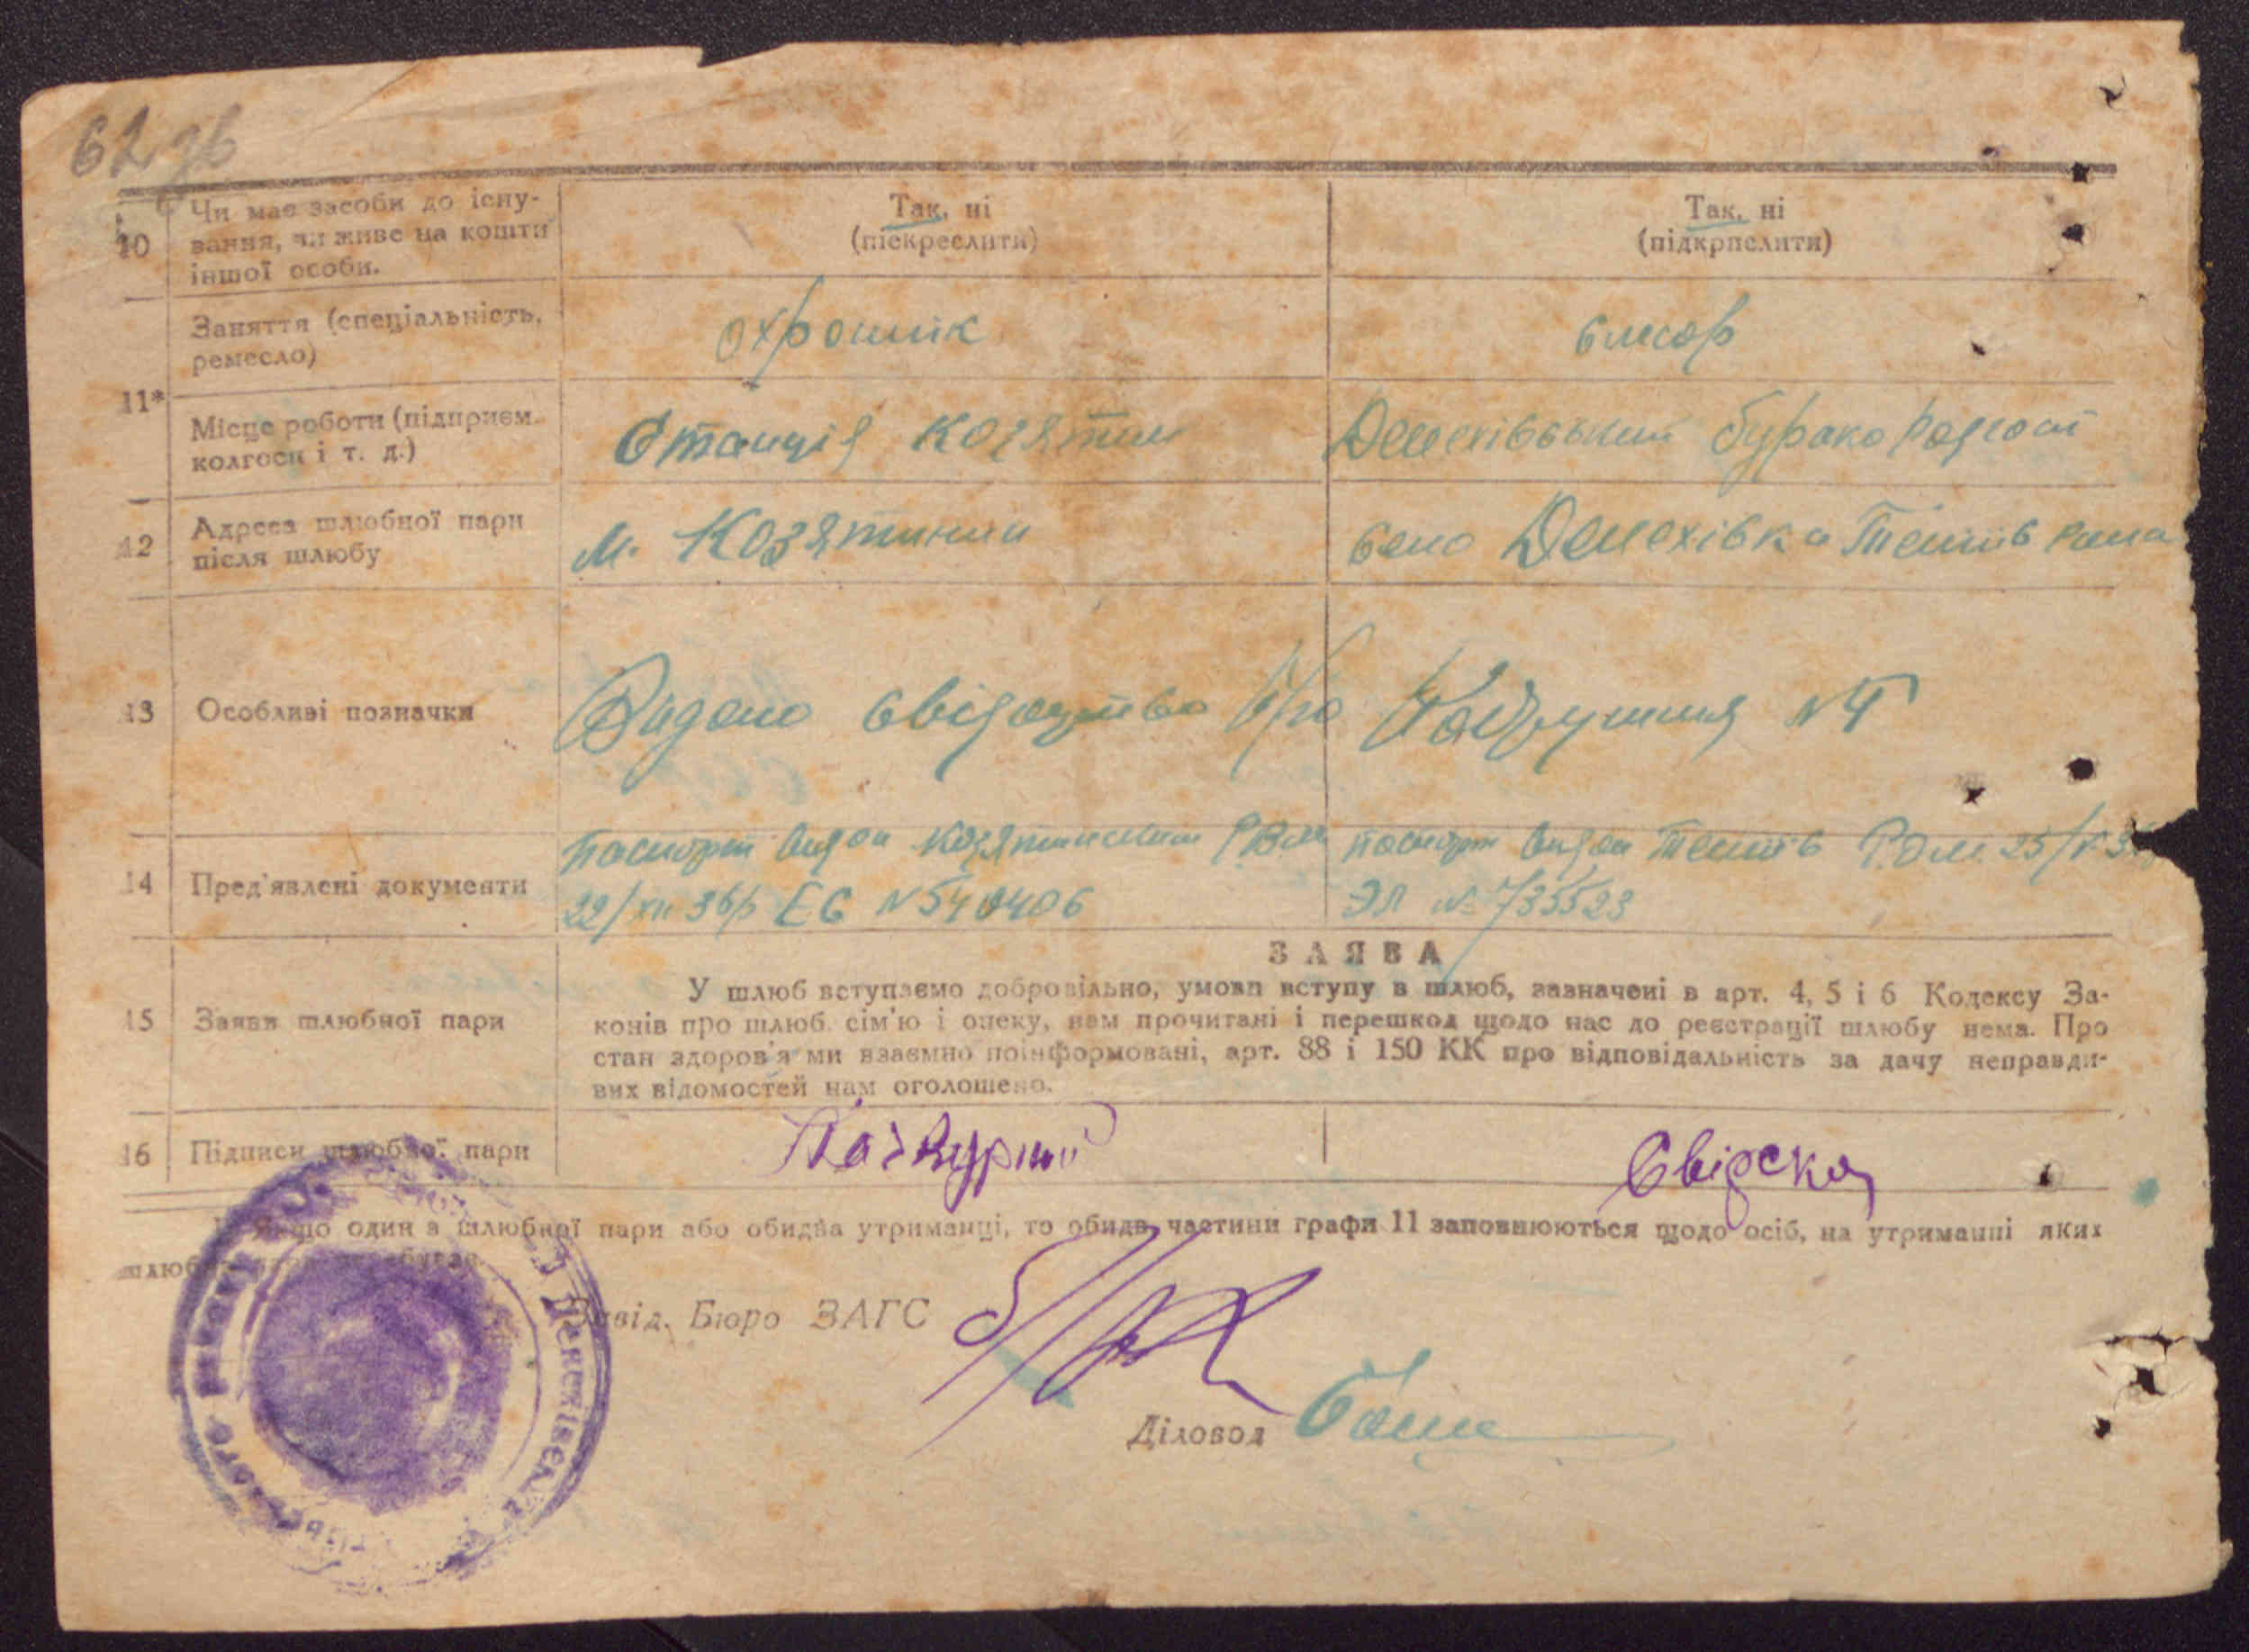 62 зв
10 Чи має засоби до існу-
вання, чи живе на кошти
іншої особи.
Так, ні
(піскреслити)
Так, ні
(підкрпслити)
Заняття (спеціальність,
ремесло)
охроник
слюсар
11*
Місце роботи (підприєм.
колгосп і т. д.)
Станція Козятин
Демехівський буряко Радгосп
12 Адреса шлюбної пари
після шлюбу
м. Козятини
село Демехівка Тептів
13 Особливі позначки
Видано свідоцтво про №
14 Пред'явлені документи
паспорт видан Козятинским
22/XII 36р ЕС №540406
паспорт видан Тептів Р.О.М. 25/
ЭЛ № 735523
ЗАЯВА
15 Заяви шлюбної пари
У шлюб вступаємо добровільно, умови вступу в шлюб, зазначені в арт. 4, 5 і 6 Кодексу За-
конів про шлюб. сім'ю і опеку, нам прочитані і перешкод щодо нас до реєстрації шлюбу нема. Про
стан здоров'я ми взаємно поінформовані, арт. 88 і 150 КК про відповідальність за дачу неправди-
вих відомостей нам оголошено.
16 Підписи шлюбної пари
Свідска
Якщо один з шлюбної пари або обидва утриманці, то обидв. частини графи 11 заповнюються щодо осіб, на утриманні яких
шлюбна пара
Завід. Бюро ЗАГС
Діловод